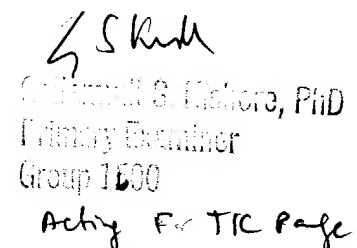 S. Kishore, PhD
Primary Examiner
Group 1600
Acting For TIC Page